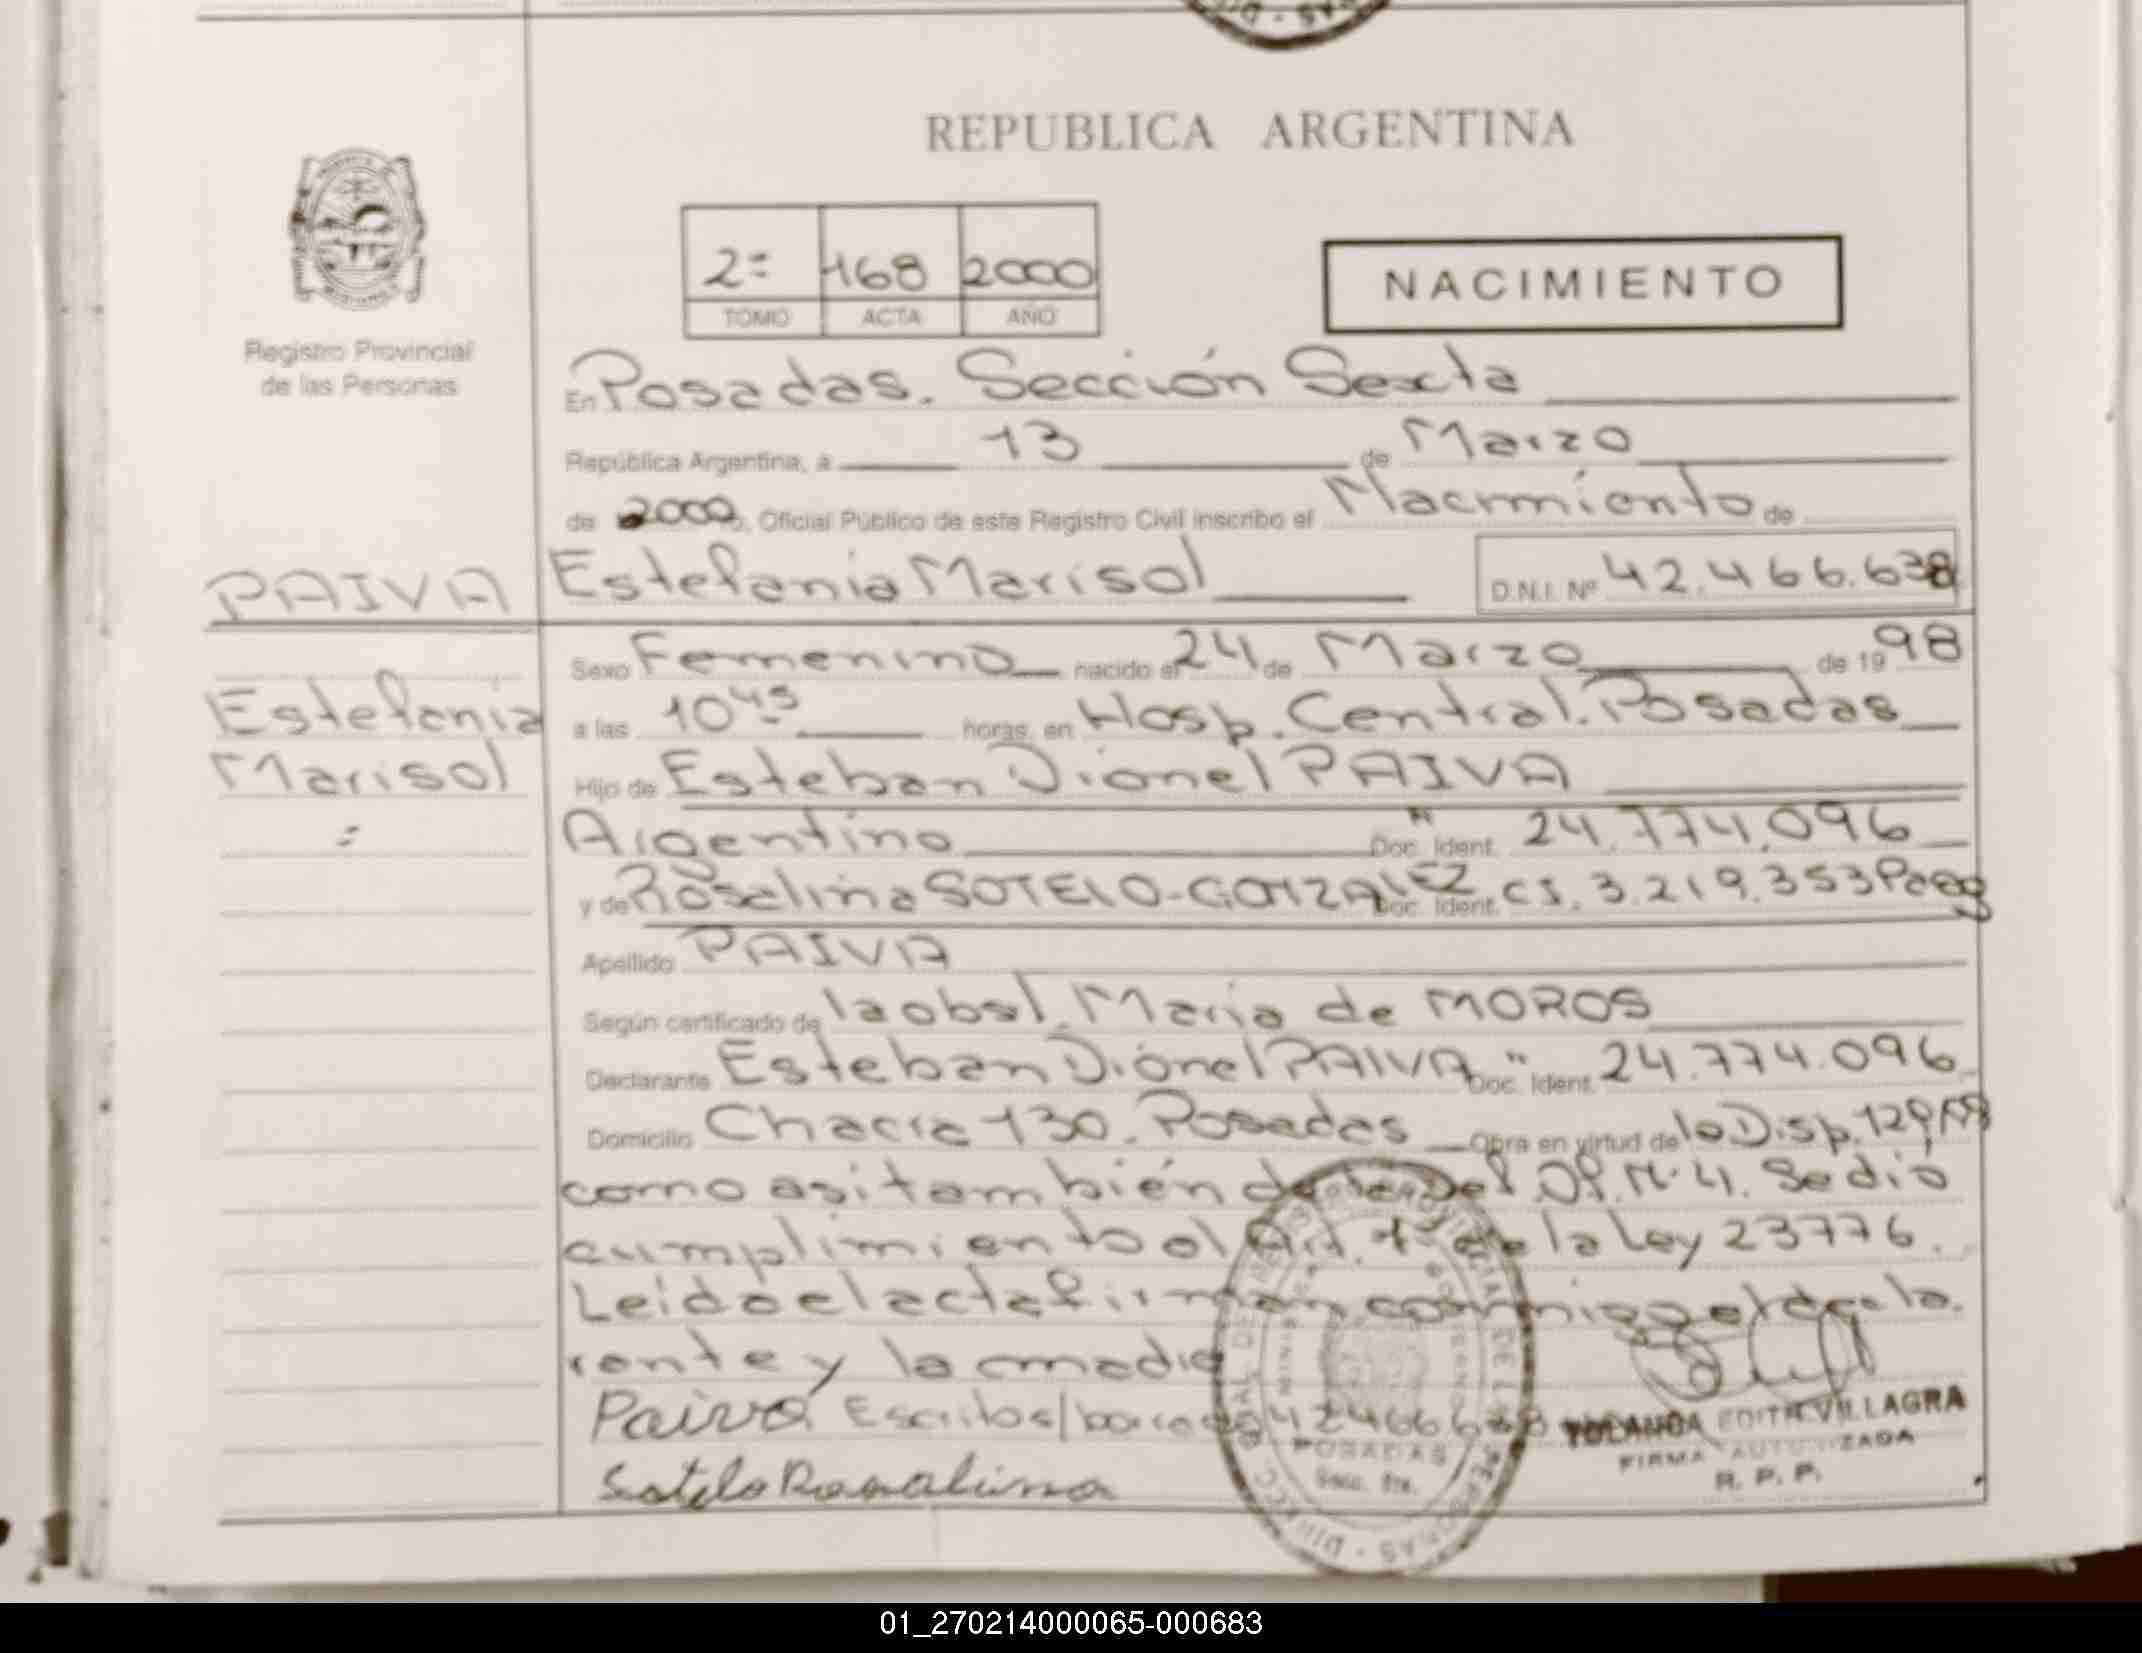 REPUBLICA ARGENTINA
2= 168 2000
TOMO ACTA AÑO
NACIMIENTO
Registro Provincial
de las Personas
En Posadas. Sección Sexta
República Argentina, a 13 de Marzo
de 2000, Oficial Público de este Registro Civil inscribo el Nacimiento de
PAIVA Estefania Marisol D.N.I. Nº 42.466.638
Sexo Femenino nacido el 24 de Marzo de 19 98
Estefania
Marisol
=
a las 10 45 horas, en Hosp. Central. Posadas
Hijo de Esteban Dionel PAIVA
Argentino Doc. Ident. 24.774.096
y de Roselina SOTELO-GONZALEZ Doc. Ident. CI. 3.219.353
Apellido PAIVA
Según certificado de la obst. María de MOROS
Declarante Esteban Dionel PAIVA Doc. Ident. 24.774.096
Domicilio Chacra 130. Posadas Obra en virtud de la Disp. 129/
como asi también del Of. N° 4. Se dió
cumplimiento al Art. 1° de la Ley 23776.
Leida el acta firman conmigo el decla.
rante y la madre
Paiva Escritos/borrado 42466638
Sotelo
YOLANDA EDITH VILLAGRA
FIRMA AUTORIZADA
R. P. P.
POSADAS
01_270214000065-000683